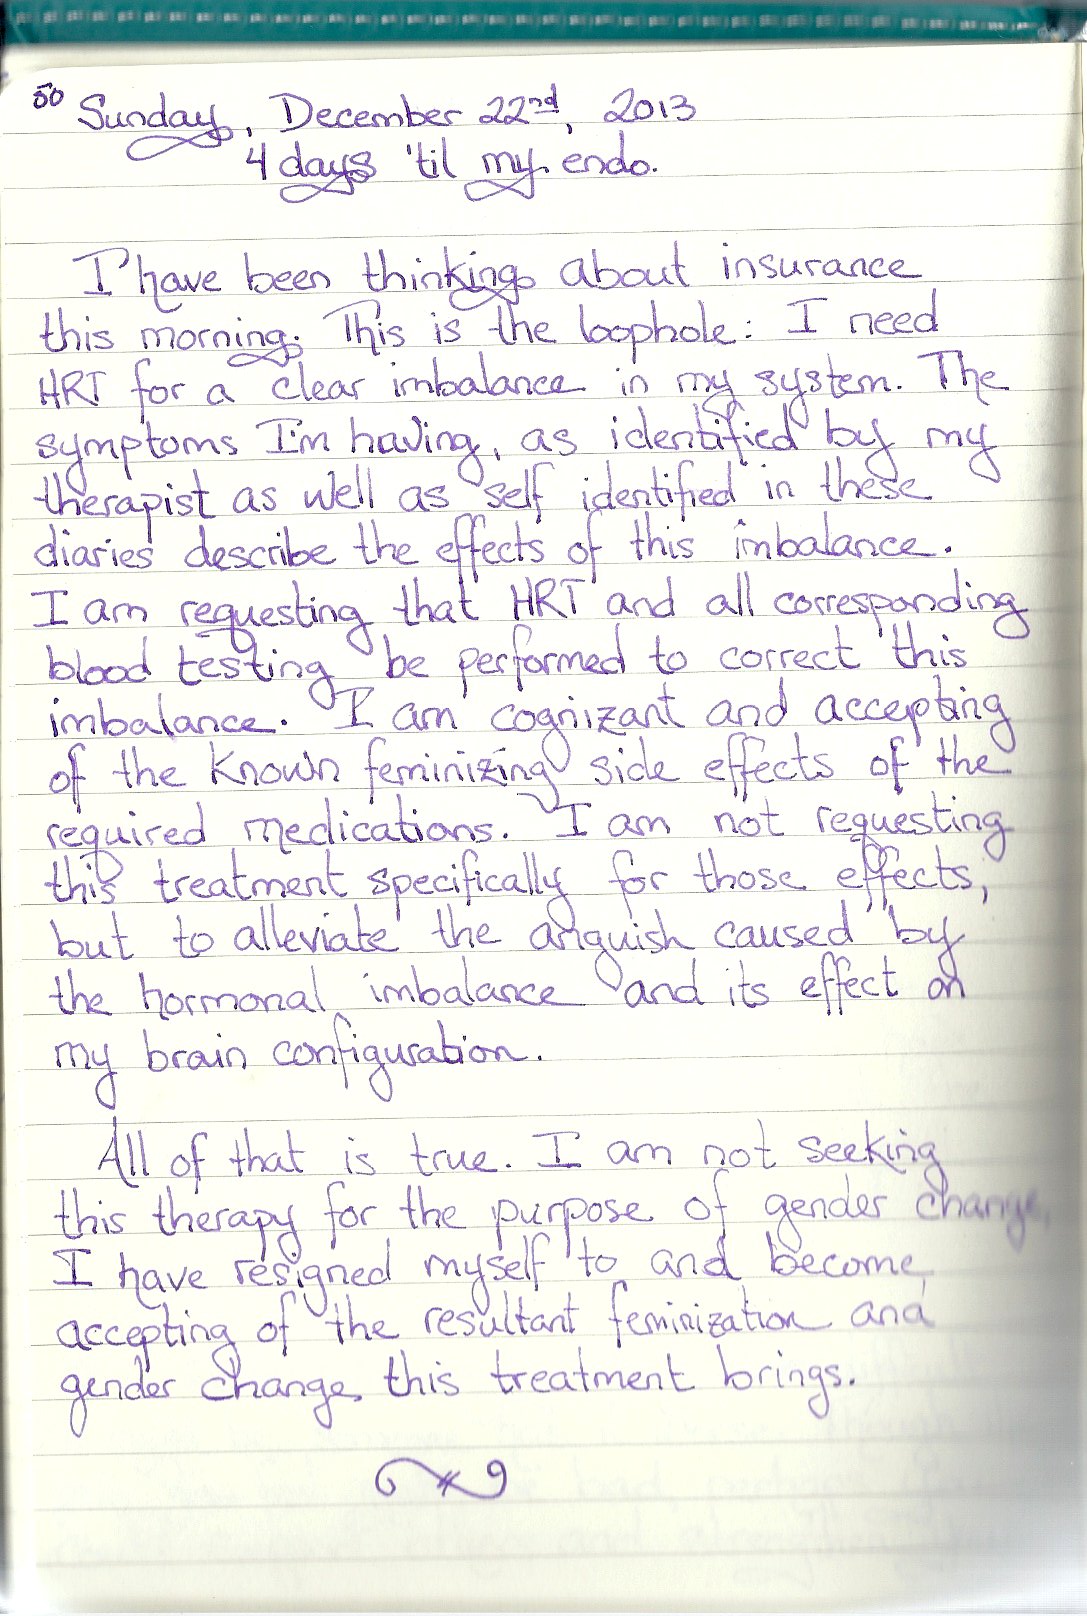 50 Sunday, December 22nd, 2013
4 days 'til my endo.
I have been thinking about insurance
this morning. This is the loophole: I need
HRT for a clear imbalance in my system. The
symptoms I'm having, as identified by my
therapist as well as self identified in these
diaries describe the effects of this imbalance.
I am requesting that HRT and all corresponding
blood testing be performed to correct this
imbalance. I am cognizant and accepting
of the known feminizing side effects of the
required medications. I am not requesting
this treatment specifically for those effects,
but to alleviate the anguish caused by
the hormonal imbalance and its effect on
my brain configuration.
All of that is true. I am not seeking
this therapy for the purpose of gender change.
I have resigned myself to and become
accepting of the resultant feminization and
gender change this treatment brings.